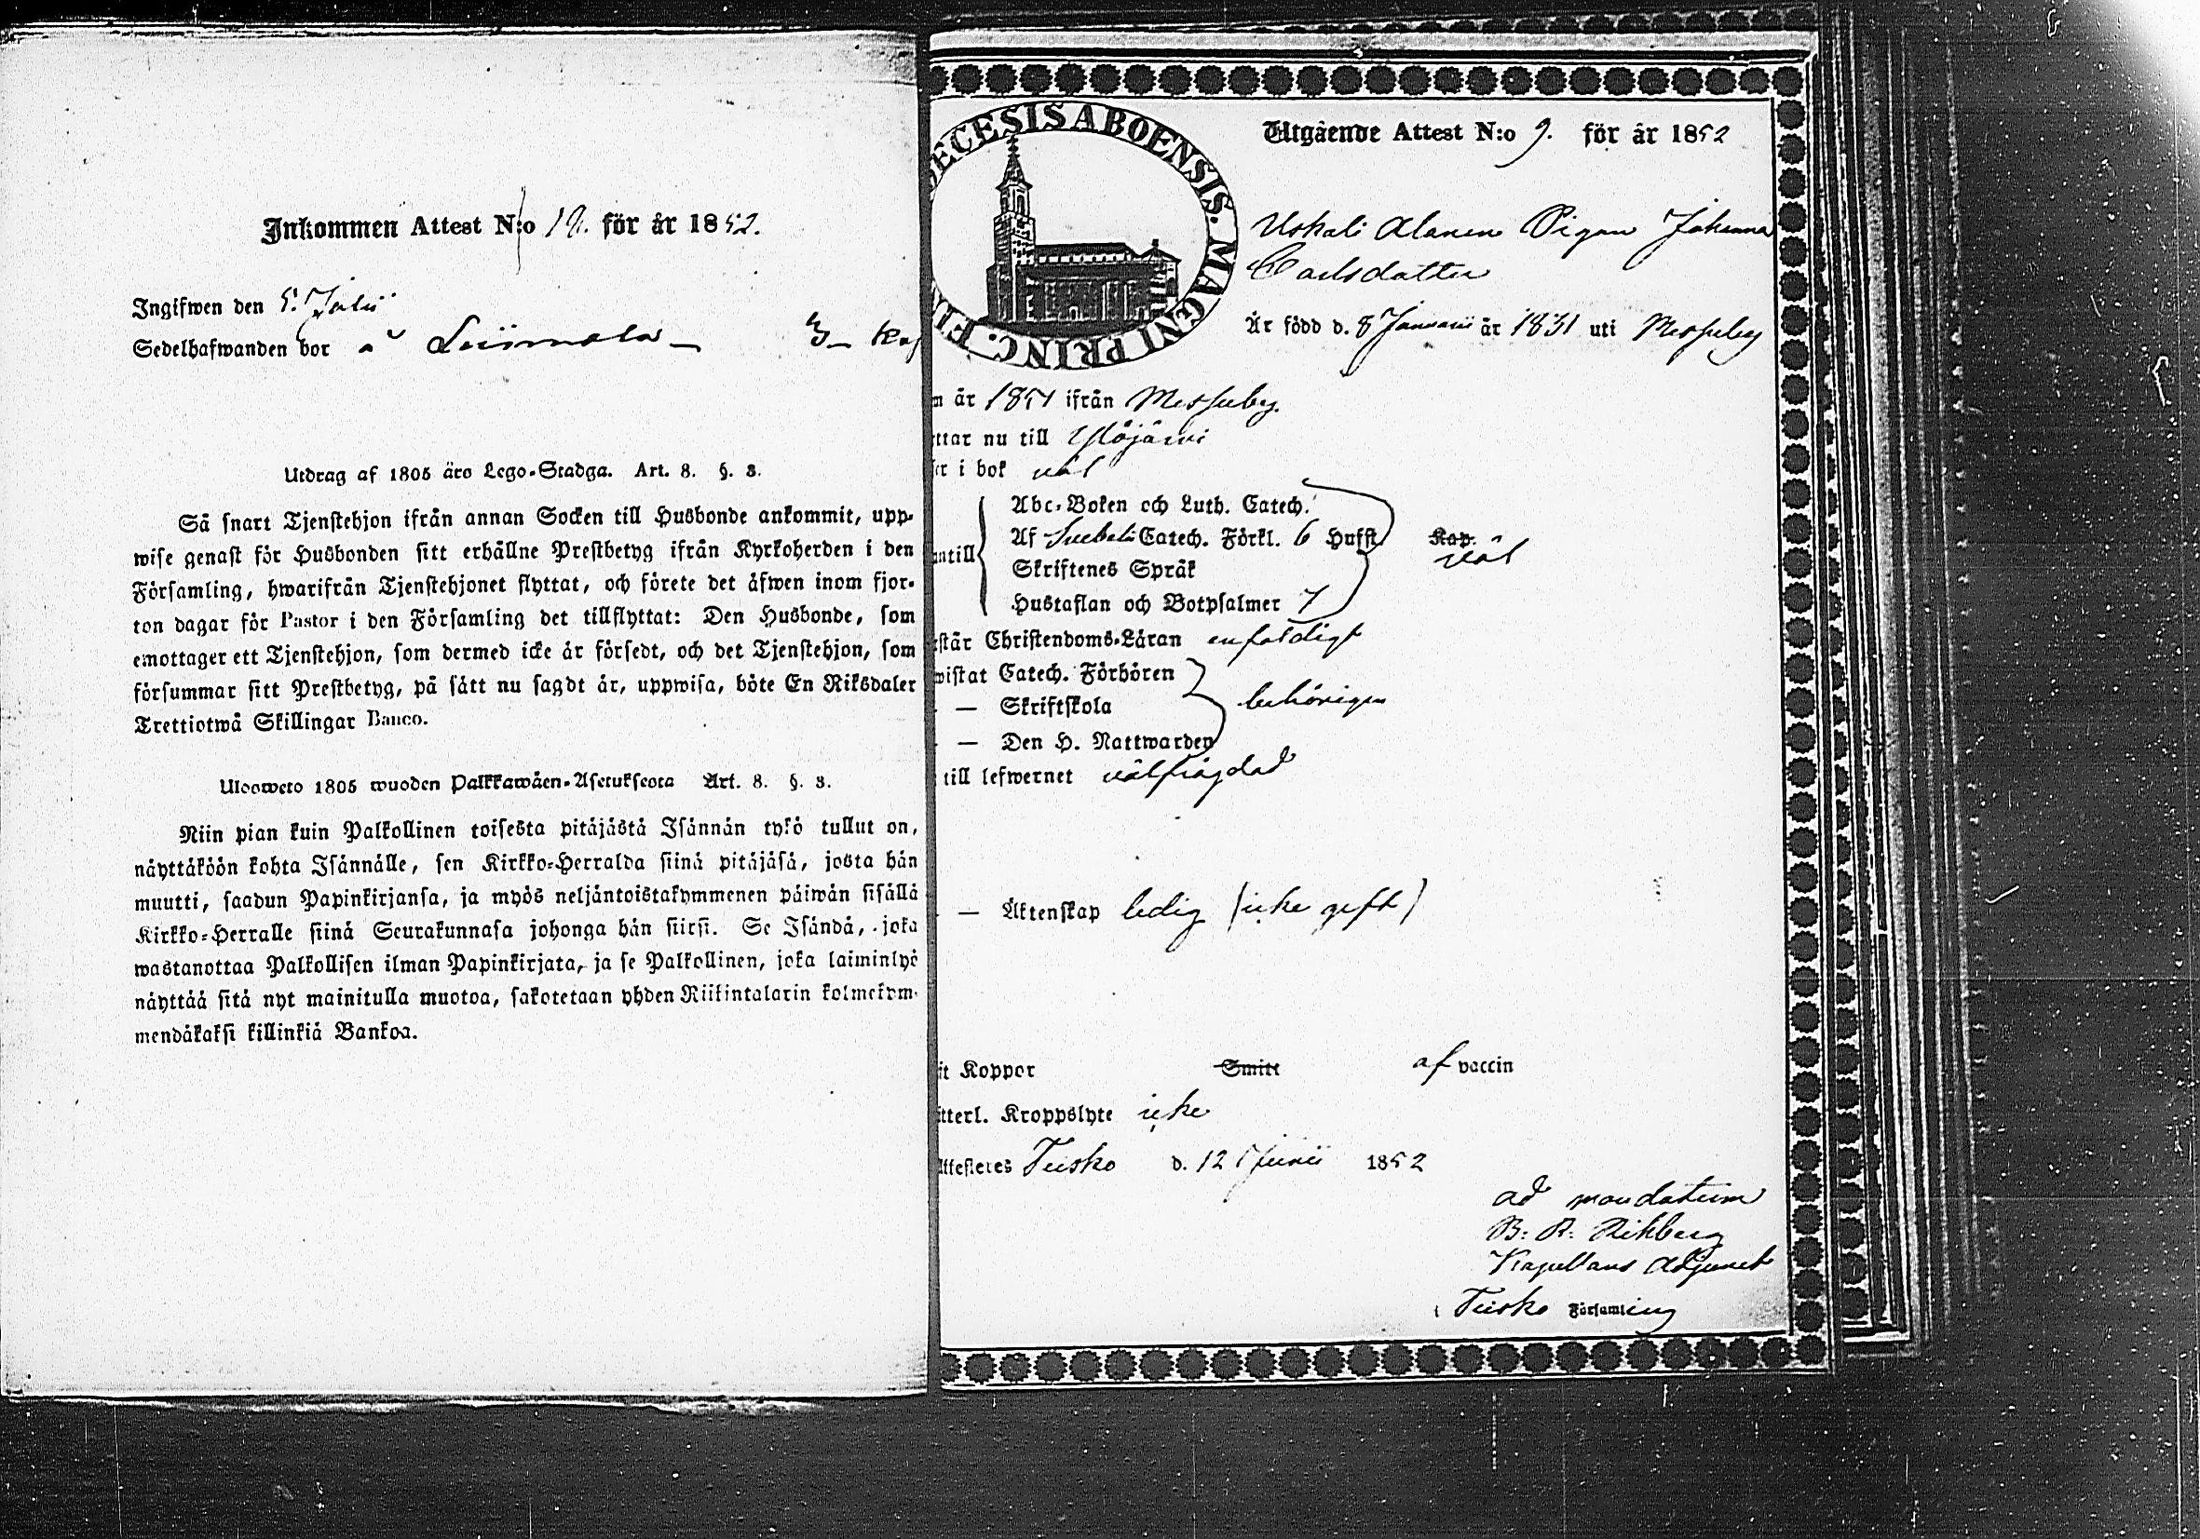 Inkommen Attest N:o 19. för år 1852.
Ingifwen den 5. Julii
Sedelhafwanden bor å Liimola
Utdrag af 1805 års Lego-Stadga. Art. 8. §. 3.
Så snart Tjenstehjon ifrån annan Socken till Husbonde ankommit, upp-
wise genast för Husbonden sitt erhållne Prestbetyg ifrån Kyrkoherden i den
Församling, hwarifrån Tjenstehjonet flyttat, och förete det äfwen inom fjor-
ton dagar för Pastor i den Församling det tillflyttat: Den Husbonde, som
emottager ett Tjenstehjon, som dermed icke är försedt, och det Tjenstehjon, som
försummar sitt Prestbetyg, på sätt nu sagdt är, uppwisa, böte En Riksdaler
Trettiotwå Skillingar Banco.
Ulosweto 1805 wuoden Palkkawäen-Asetuksesta Art. 8. §. 3.
Niin pian kuin Palkollinen toisesta pitäjästä Isännän tykö tullut on,
näyttäköön kohta Isännälle, sen Kirkko-Herralda siinä pitäjäsä, josta hän
muutti, saadun Papinkirjansa, ja myös neljäntoistakymmenen päiwän sisällä
Kirkko-Herralle siinä Seurakunnasa johonga hän siirsi. Se Isändä, joka
wastanottaa Palkollisen ilman Papinkirjata, ja se Palkollinen, joka laiminlyö
näyttää sitä nyt mainitulla muotoa, sakotetaan yhden Riikintalarin kolmekym-
mendäkaksi killinkiä Bankoa.
ECESIS ABOENSIS. MAGNI PRINC. FIN
Utgående Attest N:o 9. för år 1852
Uskali Alanen Pigan Johanna
Carlsdatter
Är född d. 8 Januarii år 1831 uti Messuby
år 1851 ifrån Messuby.
ttar nu till Ylöjärvi
i bok väl
Abc-Boken och Luth. Catech.
Af Svebeli Catech. Förkl. 6 Hufst. Kap.
väl
ntill Skriftenes Språk
Hustaflan och Botpsalmer 7
står Christendoms-Läran enfaldigt
wistat Catech. Förhören
— Skriftskola behörigen
— Den H. Nattwarden
till lefwernet välfrägdad
— Äktenskap ledig (icke gift)
it Koppor Smitt af vaccin
tterl. Kroppslyte icke
Attesteres Teisko d. 12 Junii 1852
ad mandatum
B: R: Rikberg
Kapellans Adjunct
i Teisko Församling